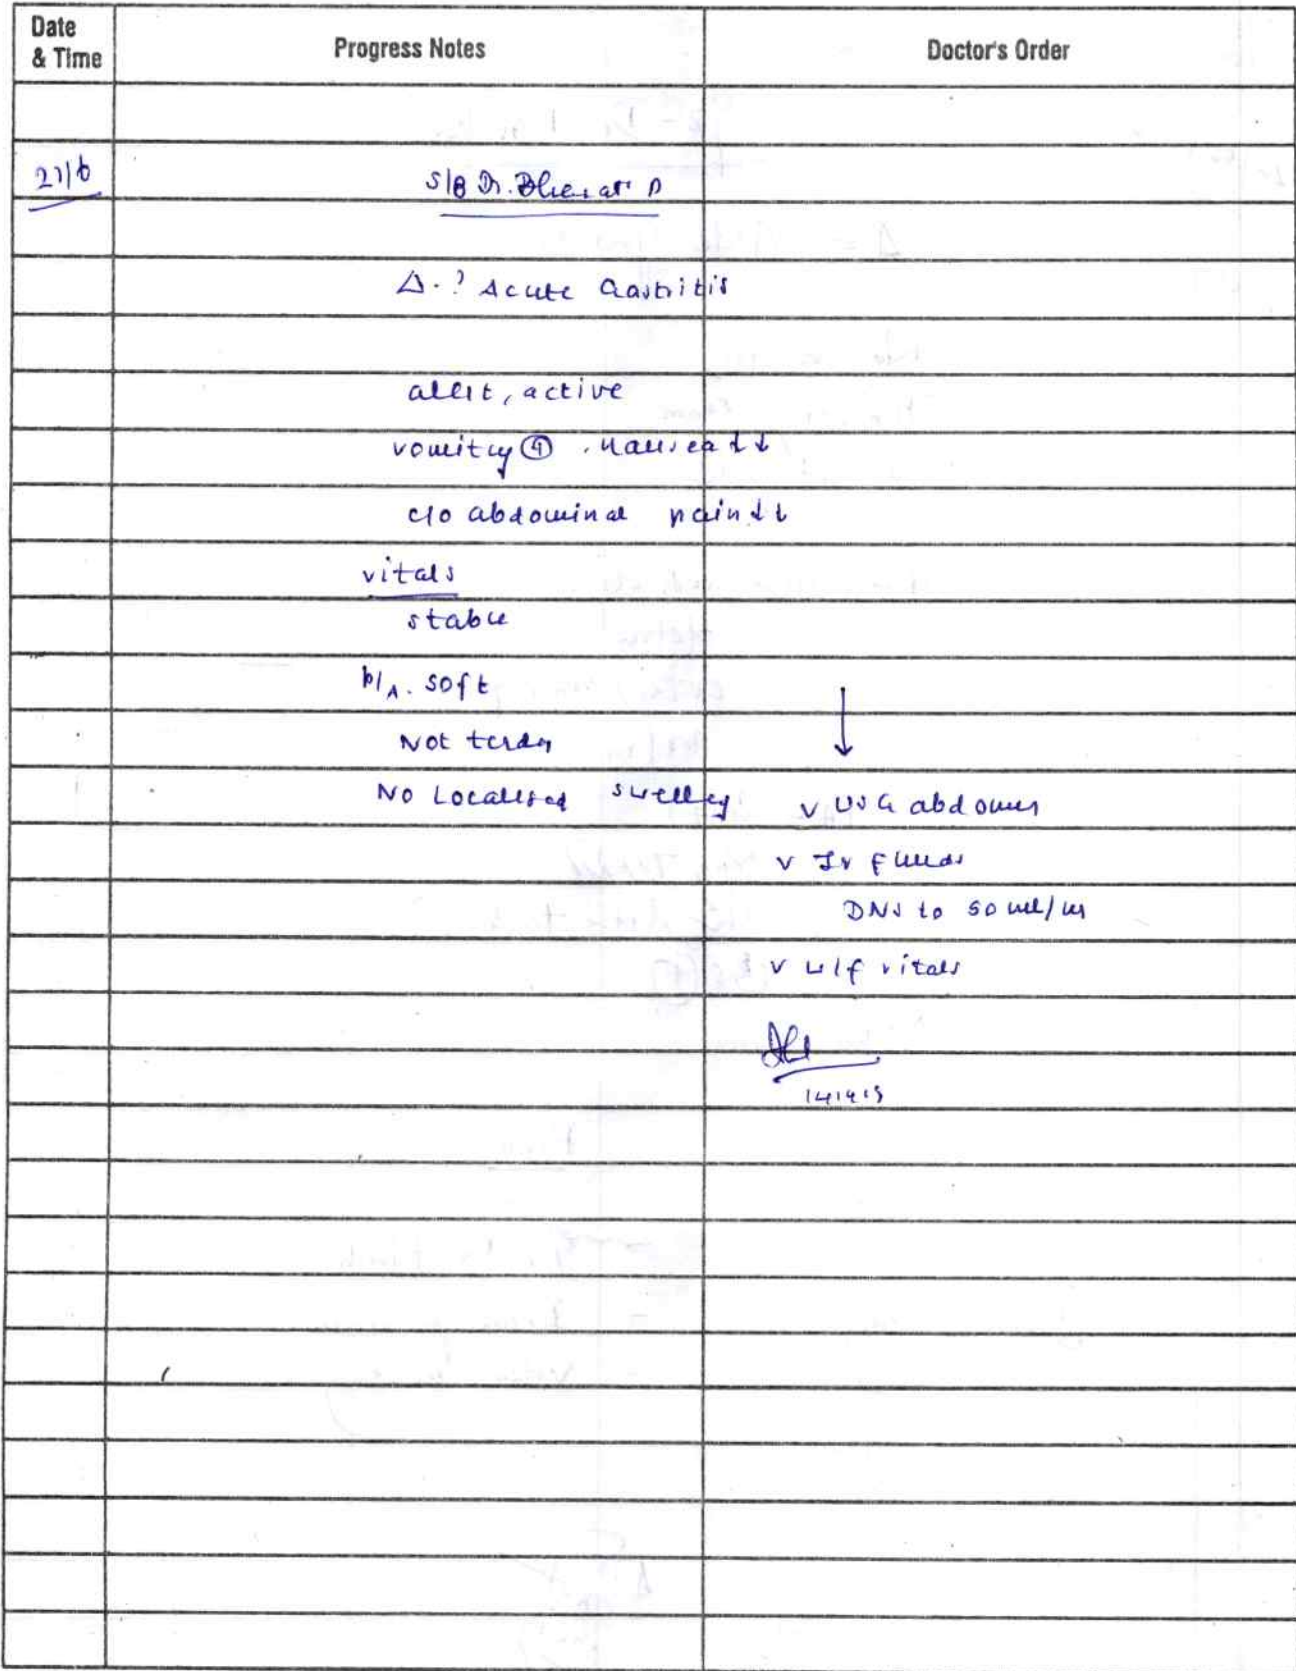 Date & Time
Progress Notes
Doctor's Order
S/B Dr. Bharat D
Δ. ? Acute Gastritis
alert, active
vomiting . nausea ↓↓
c/o abdominal pain ↓↓
vitals
stable
P/A. soft
Not tender
No Localised swelling
↓
✓ USG abdomen
✓ IV fluids
DNS to 50 ml/hr
✓ w/f vitals
141415